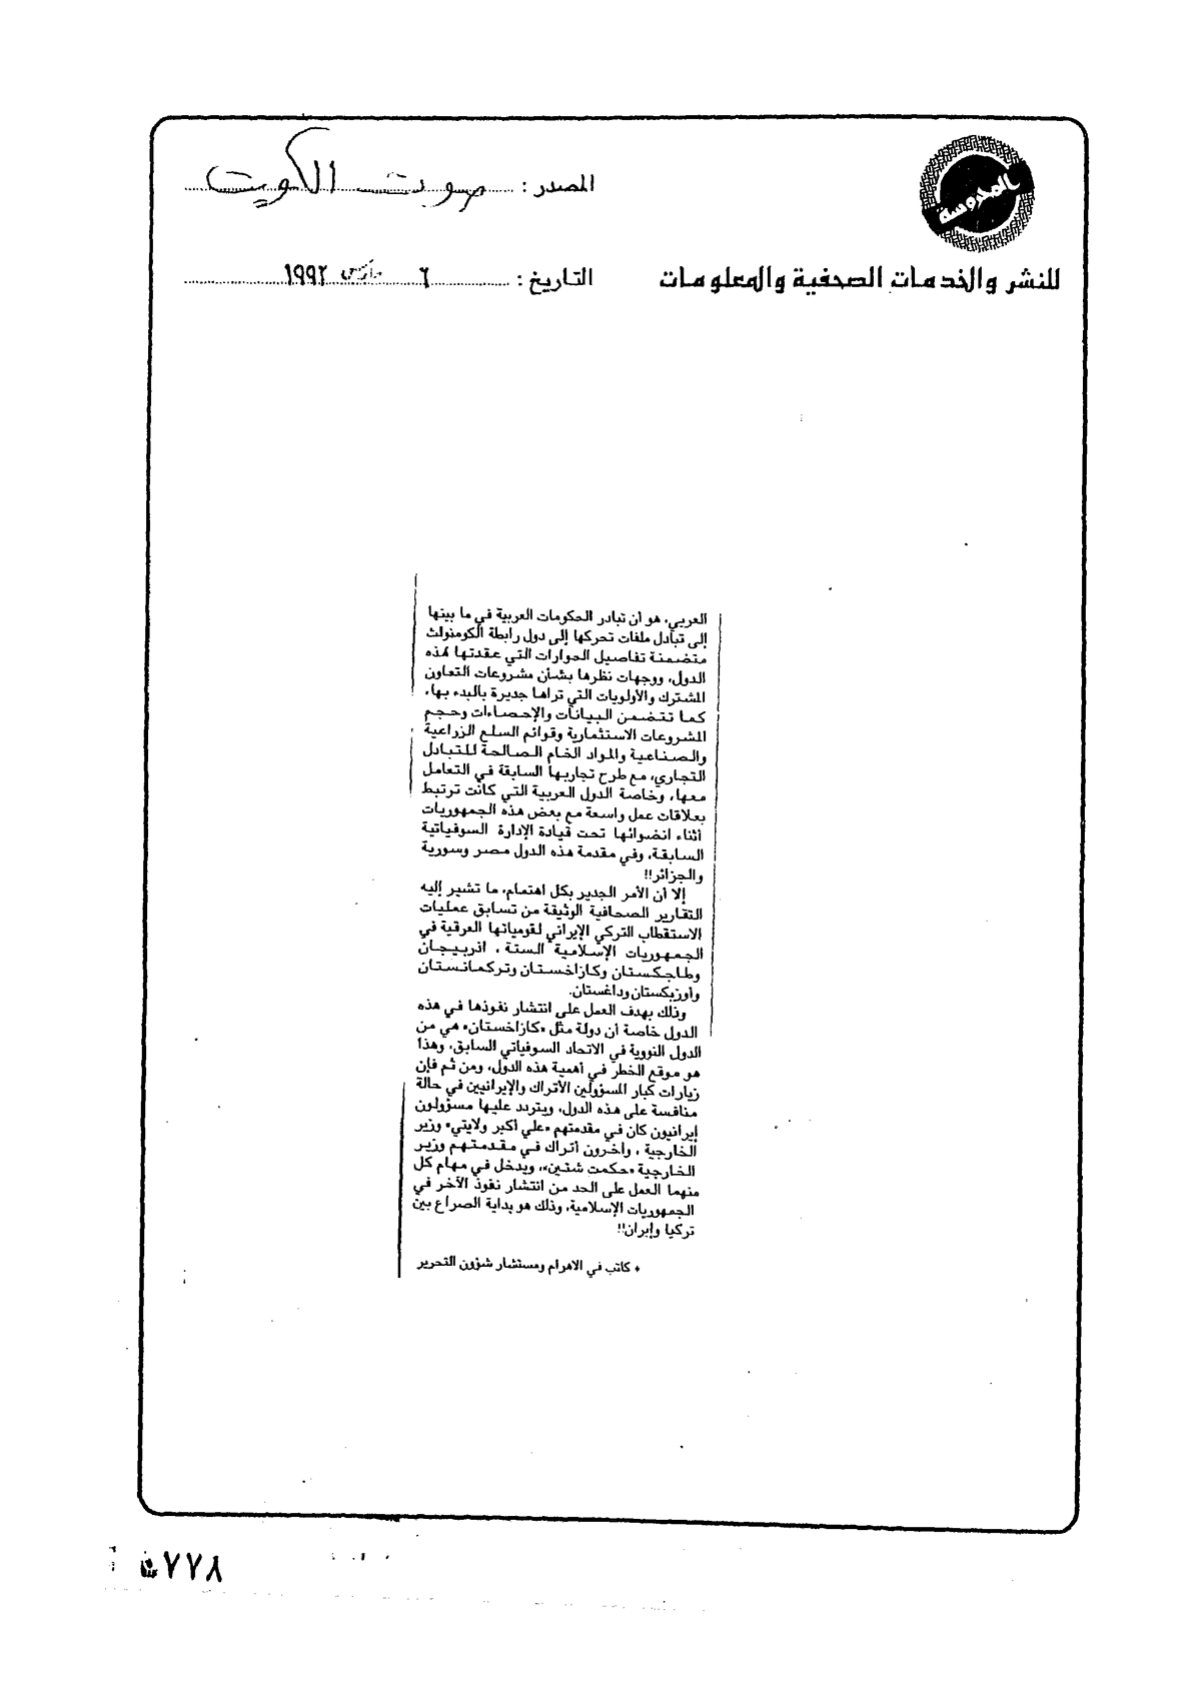 المحروسة
للنشر والخدمات الصحفية والمعلومات
المصدر : صوت الكويت
التاريخ : ٦ مارس ١٩٩٢
العربي، هو أن تبادر الحكومات العربية في ما بينها
إلى تبادل ملفات تحركها إلى دول رابطة الكومنولث
متضمنة تفاصيل الحوارات التي عقدتها لهذه
الدول، ووجهات نظرها بشأن مشروعات التعاون
المشترك والأولويات التي تراها جديرة بالبدء بها،
كما تتضمن البيانات والإحصاءات وحجم
المشروعات الاستثمارية وقوائم السلع الزراعية
والصناعية والمواد الخام الصالحة للتبادل
التجاري، مع طرح تجاربها السابقة في التعامل
معها، وخاصة الدول العربية التي كانت ترتبط
بعلاقات عمل واسعة مع بعض هذه الجمهوريات
أثناء انضوائها تحت قيادة الإدارة السوفياتية
السابقة، وفي مقدمة هذه الدول مصر وسورية
والجزائر!!
إلا أن الأمر الجدير بكل اهتمام، ما تشير إليه
التقارير الصحافية الوثيقة من تسابق عمليات
الاستقطاب التركي الإيراني لقومياتها العرقية في
الجمهوريات الإسلامية الستة ، اذربيجان
وطاجكستان وكازاخستان وتركمانستان
وأوزبكستان وداغستان.
وذلك بهدف العمل على انتشار نفوذها في هذه
الدول خاصة أن دولة مثل «كازاخستان» هي من
الدول النووية في الاتحاد السوفياتي السابق، وهذا
هو موقع الخطر في أهمية هذه الدول، ومن ثم فإن
زيارات كبار المسؤولين الأتراك والإيرانيين في حالة
منافسة على هذه الدول، ويتردد عليها مسؤولون
إيرانيون كان في مقدمتهم «علي أكبر ولايتي» وزير
الخارجية ، وآخرون أتراك في مقدمتهم وزير
الخارجية «حكمت شتين»، ويدخل في مهام كل
منهما العمل على الحد من انتشار نفوذ الآخر في
الجمهوريات الإسلامية، وذلك هو بداية الصراع بين
تركيا وإيران!!
♦ كاتب في الاهرام ومستشار شؤون التحرير
٧٧٨